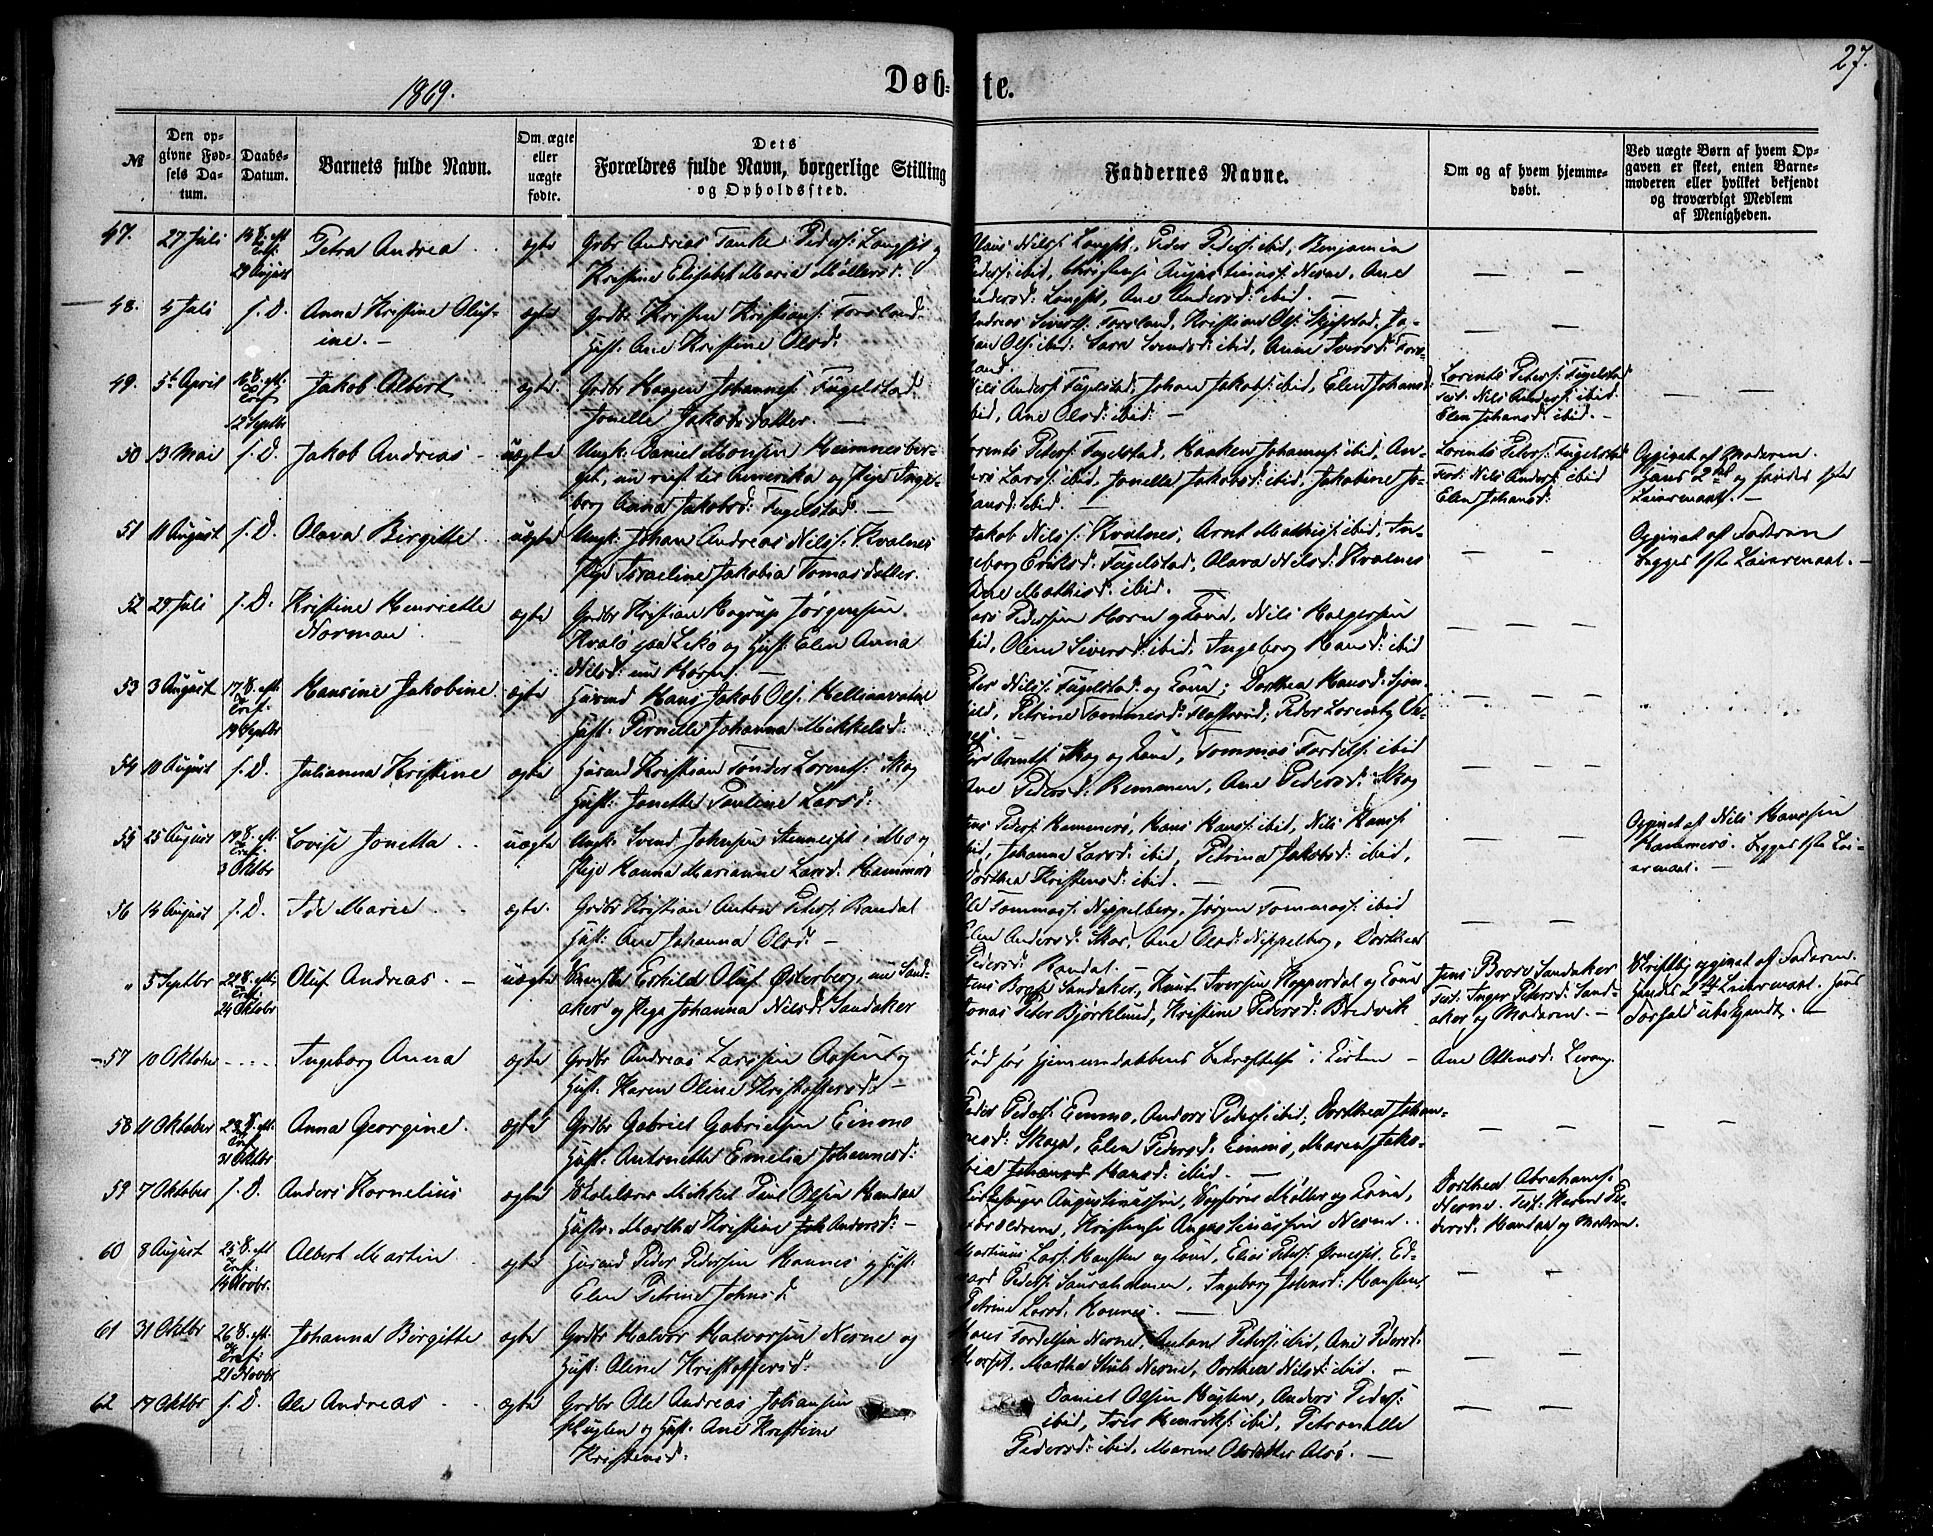 27.
1869.
Døbte.
№
Den opgivne Fødsels Datum.
Daabs-Datum.
Barnets fulde Navn.
Om ægte eller uægte fødte.
Dets Forældres fulde Navn, borgerlige Stilling og Opholdssted.
Faddernes Navne.
Om og af hvem hjemmedøbt.
Ved uægte Børn af hvem Opgaven er skeet, enten Barnemoderen eller hvilket bekjendt og troværdigt Medlem af Menigheden.
47. 27 Juli 29 August Petra Andrea ægte Grbr Andreas Tanke Peders: Langset og
Kristine Elisabet Maria Møllersd.
Nils: Langset, Peder Peders: ibid, Benjamin
Peders: ibid, Christense Augustinusd. Nesne, Ane
Andersd: Langset, Ane Andersd: ibid. —
48. 5 Juli s. D. Anna Kristine Oluf-
ine. — ægte Grdbr Kristen Kristians: Forsland
Hust: Ane Kristine Olsd:
Andreas Siverts: Forsland, Kristian Ols:
Ols: ibid: Sara Svendsd: ibid, Anne
49. 5te April 12 Septbr Jakob Albert ægte Grdbr Haagen Johannes: Fugelstad
Jonelle Jakobsdatter. —
Nils Anders: Fugelstad, Johan Jakobs: ibid, Elen Johansd:
ibid, Ane Olsd: ibid: —
Lorents Peters: Fugelstad
Test: Nils Anders: ibid
Elen Johansd: ibid. —
50 13 Mai s. D. Jakob Andreas — uægte Ungk: Daniel Monsen Hemnesber-
get, nu reist til Amerika og Pige Inge-
borg Anna Jakobsd: Fugelstad. —
Lorents Peters: Fugelstad, Haaken Johannes: ibid, An-
ders Lars: ibid, Jonelle Jakobsd: ibid, Jakobine Jo-
hansd: ibid.
Lorents Peters: Fugelstad
Test: Nils Anders: ibid
Elen Johansd:
Opgivet af Moderen.
Hans 2det og hendes 1ste
Leiermaal. —
51 11 August s. D. Olava Birgitte uægte Ungk: Johan Andreas Nils: Kvalnes
Pige Israeline Jakobia Tomasdatter.
Jakob Nils: Kvalnes, Arnt Mathis: ibid, In-
geborg Eriksd: Fugelstad, Olava Nilsd: Kvalnes
Ane Mathisd: ibid. —
Opgivet af Faderen
begges 1ste Leiermaal. —
52 29 Juli s. D. Kristine Henriette
Norman ægte Grdbr Kristian Hagrup Jørgensen
Kvalø paa Lekø og Hust: Elen Anna
Nilsd:
Lars Pedersen Horn og Kone, Nils Holgersen
ibid, Oline Siversd: ibid, Ingeborg Hansd: ibid
53 3 August 19 Septbr Hansine Jakobine. ægte Husmd Hans Jakob Ols:
Hust: Pernille Johanna Mikkelsd:
Peter Nils: Fugelstad: og Kone; Dorthea Hansd:
Petrine Tommesd: Flostrand; Peder Lorents
54 10 August s. D. Julianna Kristine ægte Husmd Kristian Tønder Lorents: Skog
Hust: Jonette Pauline Larsd:
Arents: Skog og Kone, Tommas Fordels: ibid
Ane Pedersd: Remmen, Ane Pedersd: Skog
55 25 August 3 Oktbr Lovise Jonetta uægte Ungk: Svend Johnsen Stenneset i Mo og
Pige Hanna Marianne Larsd: Hammerø
Jens Peders: Hammerø, Hans Hans: ibid, Nils Hans:
ibid, Johanna Larsd: ibid, Petrina Jakobsd: ibid,
Dorthea Kristensd: ibid. —
Opgivet af Nils Hanssen
Hammerø. begges 1ste Lei-
ermaal. —
56 14 August s. D. Ida Marie ægte. Grdbr Kristian Anton Peters: Randal
Hust: Ane Johanna Olsd: —
Ole Tommas: Nippelberg, Jørgen Tommas: ibid
Elen Andersd: Skar, Ane Olsd: Nippelberg, Dorthea
Pedersd: Randal. —
" 5 Septbr 24 Oktobr Oluf Andreas. — uægte Eskild Oluf Østerberg, nu Sand-
aker og Pige Johanna Nilsd: Sandaker
Jens Brose Sandaker, Knut Iversen Kopperdal og Kone
Jonas Peter Björklund, Kristine Pedersd: Bredvik
Jens Brose Sandaker
Test: Inger Petersd: Sand-
aker og Moderen. —
Skriftlig opgivet af Faderen.
Hendes 2det Leiermaal. Hans
Forhold ubekjendt. —
57 10 Oktober Ingeborg Anna ægte Grdbr Andreas Larssen Aasen og
Hust: Karen Oline Kristoffersd: —
Død før Hjemmedaabens Bekræftelse i Kirken —
Ane Ottersd: Levang.
58 11 Oktober 31 Oktbr Anna Georgine. ægte Grdbr Gabriel Gabrielsen Einmo
Hust: Antonette Emelia Johannesd:
Peder Peders: Einmo, Anders Peders: ibid, Dorthea Johan-
nesd: Skoga, Elen Pedersd: Einmo, Maren Jako-
bia Johansd Hansd: ibid. —
59 7 Oktober s. D. Anders Kornelius ægte Skolelærer Mikkel Paul Olsen Handnes
Hustr: Martha Kristine Joh Andersd: —
Augustinussen, Møller og Kone,
Forældrene, Kristense Augustinussen Nesne.
Dorthea Abrahams:
Nesne. Test: Karen Pe-
dersd: Handnes og Moderen.
60 8 August 14 Novbr. Albert Martin ægte Husmd Peder Pedersen Hannes og Hust:
Elen Petrine Johnsd.
Martinus Lars: Hansten og Kone, Elias Peters: Ørneset. Ed-
vard Peders: Saursholmen, Ingeborg Johnsd: Hansten,
Petrine Larsd. Hannes. —
61 31 Oktbr 21 Novbr Johanna Borgitte ægte Grdbr Halvor Halvorsen Nesne og
Hust: Oline Kristoffersd:
Hans Fordelsen Nesne, Antone Petersd: ibid, Ane Pedersd:
Martha Stub Nesne, Dorthea Nilsd: ibid. —
62 17 Oktbr s. D. Ole Andreas ægte Grdbr Ole Andreas Johansen
Huglen og Hust: Ane Kristine
Kristensd:
Daniel Olsen Huglen, Anders Peders:
ibid, Iver Henriks: ibid, Petronelle
Pedersd: ibid, Maren Olsdatter Alsø. —